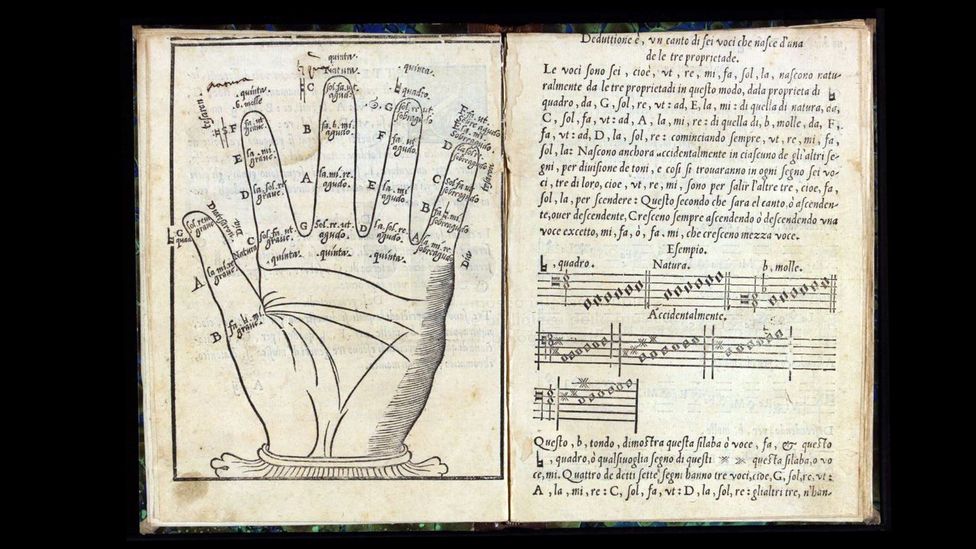 quinta
Natura.
C
sol.fa.ut.
agudo.
quinta.
b.molle
quinta.
quadro.
F
fa.ut
graue.
B
fa.b.mi
agudo.
G
sol.re.ut.
sobreagudo
E
la.mi
graue.
F
fa.ut
agudo.
D
A
la.mi.re
agudo.
D
la.sol.re
graue.
E
la.mi
agudo.
C
sol.fa.ut
B
fa.b.mi
C
sol.fa.ut
graue.
G
sol.re.ut
agudo.
D
la.sol.re
agudo.
A
la.mi.re
Natura
quinta.
quinta.
quinta.
G
A
la.mi.re
graue.
B
fa.b.mi
graue.
Deduttione è, vn canto di sei voci che nasce d'una
de le tre proprietade.
Le voci sono sei, cioè, vt, re, mi, fa, sol, la, nascono natu-
ralmente da le tre proprietadi in questo modo, dala proprieta di
quadro, da, G, sol, re, vt: ad, E, la, mi: di quella di natura, da
C, sol, fa, vt: ad, A, la, mi, re: di quella di, b, molle, da, F,
fa, vt: ad, D, la, sol, re: cominciando sempre, vt, re, mi, fa,
sol, la: Nascono anchora accidentalmente in ciascuno de gli altri se-
gni, per diuisione de toni, e cosi si trouaranno in ogni segno sei vo-
ci, tre di loro, cioe, vt, re, mi, sono per salir l'altre tre, cioe, fa,
sol, la, per scendere: Questo secondo che sara el canto, ò ascenden-
te, ouer descendente, Cresceno sempre ascendendo ò descendendo vna
voce excetto, mi, fa, ò, fa, mi, che cresceno mezza voce.
Esempio.
quadro.
Natura.
b, molle.
Accidentalmente.
Questo, b, tondo, dimostra questa silaba ò voce, fa, & questo
, quadro, ò qualsiuoglia segno di questi questa silaba, o vo
ce, mi. Quattro de detti sette segni hanno tre voci, cioe, G, sol, re, vt:
A, la, mi, re: C, sol, fa, vt: D, la, sol, re: gli altri tre, n'han-